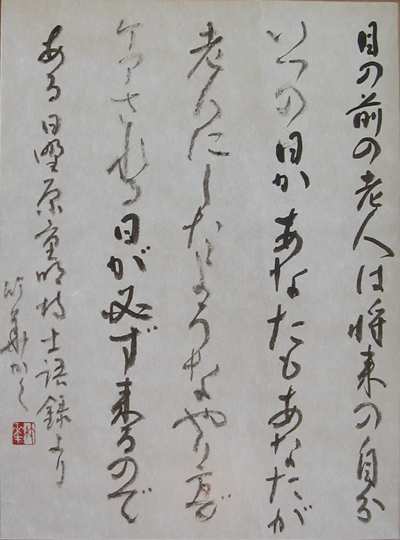 目の前の老人は将来の自分
いつの日かあなたもあなたが
老人にしたようなやり方で
をされる日が必ず来るので
ある 日野原重明博士語録より
かく